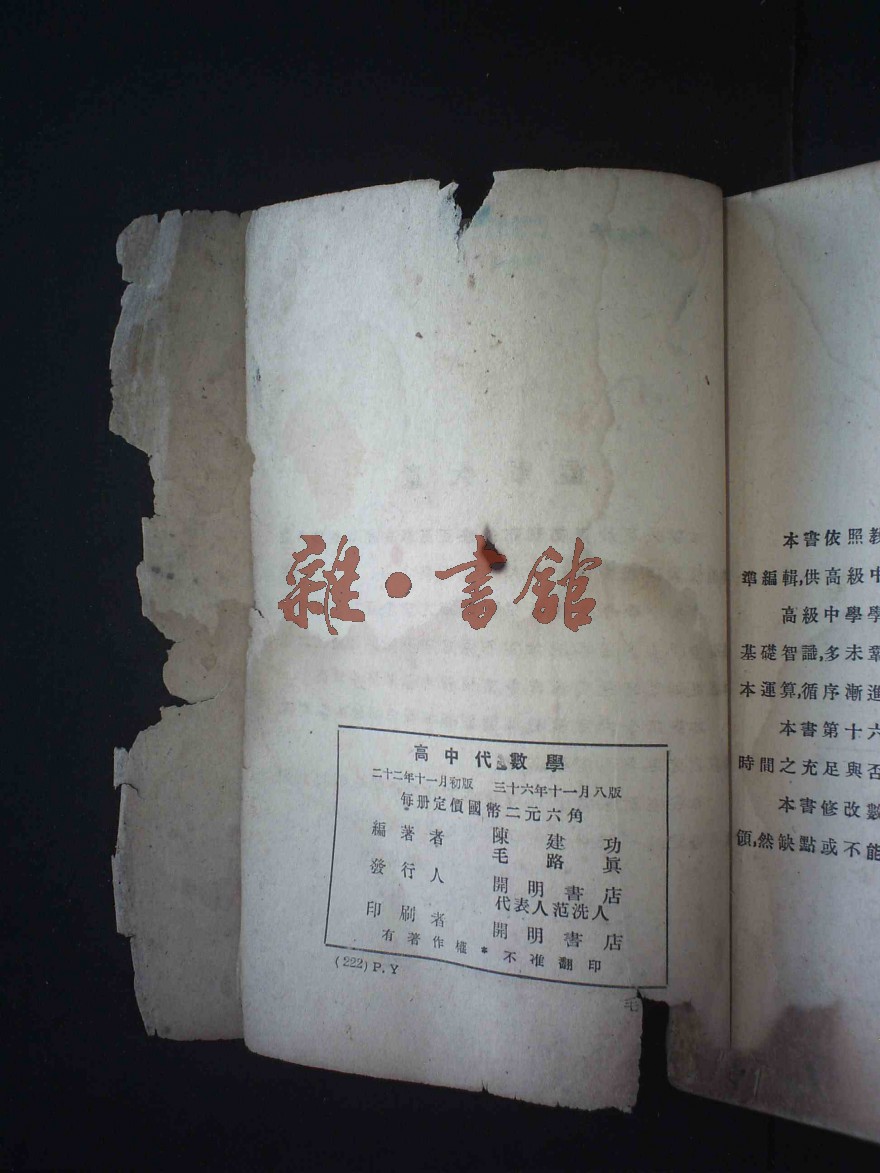 雜·書館
高中代數學
二十二年十一月初版 三十六年十一月八版
每册定價國幣二元六角
編著者 陳建功
毛路真
發行人 開明書店
代表人范洗人
印刷者 開明書店
有著作權＊不准翻印
(222) P. Y
毛
本書依照教
準編輯,供高級中
高級中學學
基礎智識,多未
本運算,循序漸進
本書第十六
時間之充足與否
本書修改數
領,然缺點或不能